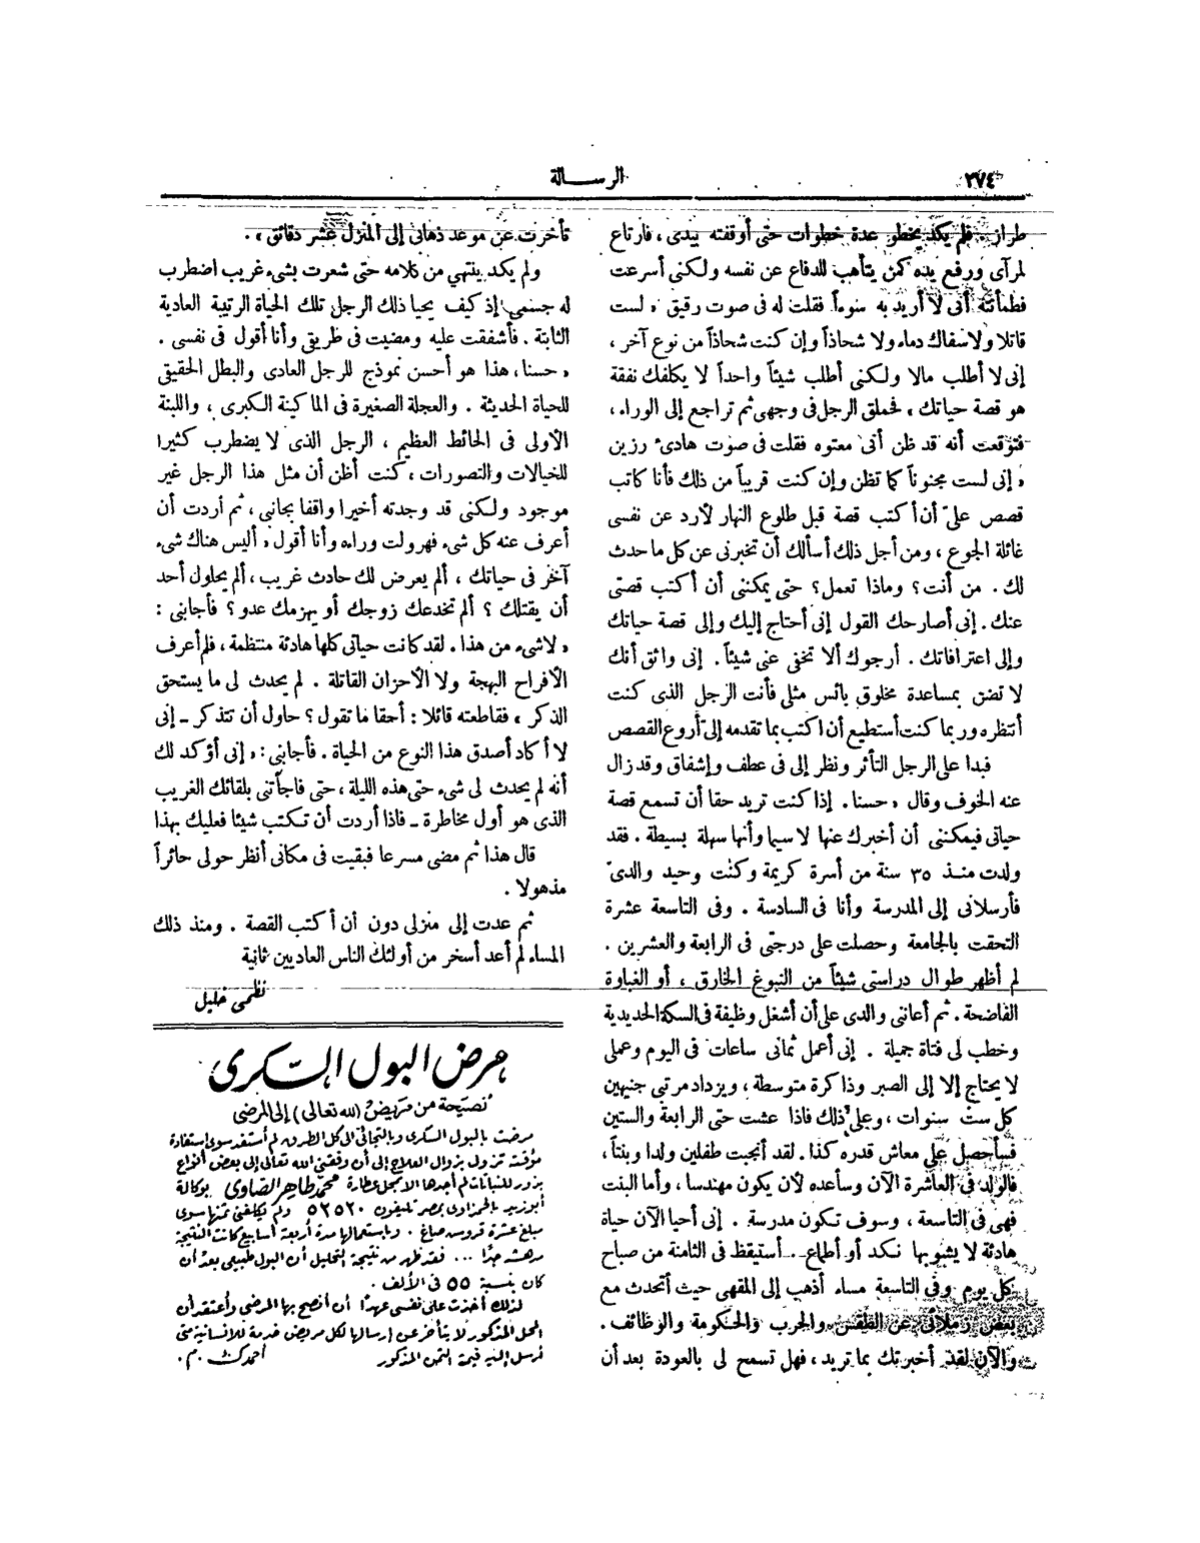 ٣٧٤
الرسالة
طراز. فلم يكد يخطو عدة خطوات حتى أوقفته بيدى، فارتاع
لمرآى ورفع يده كمن يتأهب للدفاع عن نفسه ولكنى أسرعت
فطمأنته أنى لا أريد به سوءاً. فقلت له فى صوت رقيق «لست
قاتلا ولا سفاك دماء ولا شحاذاً وإن كنت شحاذاً من نوع آخر،
إنى لا أطلب مالا ولكنى أطلب شيئاً واحداً لا يكلفك نفقة
هو قصة حياتك، فحملق الرجل فى وجهى ثم تراجع إلى الوراء،
فتوقعت أنه قد ظن أنى معتوه فقلت فى صوت هادىء رزين
«إنى لست مجنوناً كما تظن وإن كنت قريباً من ذلك فأنا كاتب
قصص علىّ أن أكتب قصة قبل طلوع النهار لأرد عن نفسى
غائلة الجوع، ومن أجل ذلك أسألك أن تخبرنى عن كل ما حدث
لك. من أنت؟ وماذا تعمل؟ حتى يمكننى أن أكتب قصتى
عنك. إنى أصارحك القول إنى أحتاج إليك وإلى قصة حياتك
وإلى اعترافاتك. أرجوك ألا تخفى عنى شيئاً. إنى واثق أنك
لا تضن بمساعدة مخلوق بائس مثلى فأنت الرجل الذى كنت
أنتظره وربما كنت أستطيع أن اكتب بما تقدمه إلى أروع القصص
فبدا على الرجل التأثر ونظر إلى فى عطف وإشفاق وقد زال
عنه الخوف وقال «حسنا. إذا كنت تريد حقا أن تسمع قصة
حياتى فيمكننى أن أخبرك عنها لاسيما وأنها سهلة بسيطة. فقد
ولدت منذ ٣٥ سنة من أسرة كريمة وكنت وحيد والدىّ
فأرسلانى إلى المدرسة وأنا فى السادسة. وفى التاسعة عشرة
التحقت بالجامعة وحصلت على درجتى فى الرابعة والعشرين.
لم أظهر طوال دراستى شيئاً من النبوغ الخارق، أو الغباوة
الفاضحة. ثم أعاننى والدى على أن أشغل وظيفة فى السكة الحديدية
وخطب لى فتاة جميلة. إنى أعمل ثمانى ساعات فى اليوم وعملى
لا يحتاج إلا إلى الصبر وذاكرة متوسطة، ويزداد مرتبى جنيهين
كل ست سنوات، وعلى ذلك فاذا عشت حتى الرابعة والستين
فسأحصل على معاش قدره كذا. لقد أنجبت طفلين ولدا وبنتاً،
فالولد فى العاشرة الآن وسأعده لأن يكون مهندسا، وأما البنت
فهى فى التاسعة، وسوف تكون مدرسة. إنى أحيا الآن حياة
هادئة لا يشوبها نكد أو أطماع. أستيقظ فى الثامنة من صباح
كل يوم وفى التاسعة مساء أذهب إلى المقهى حيث أتحدث مع
بعض زملائى عن الطقس والحرب والحكومة والوظائف.
والآن لقد أخبرتك بما تريد، فهل تسمح لى بالعودة بعد أن
تأخرت عن موعد ذهابى إلى المنزل عشر دقائق».
ولم يكد ينتهى من كلامه حتى شعرت بشىء غريب اضطرب
له جسمى إذ كيف يحيا ذلك الرجل تلك الحياة الرتيبة العادية
الثابتة. فأشفقت عليه ومضيت فى طريقى وأنا أقول فى نفسى.
«حسنا، هذا هو أحسن نموذج للرجل العادى والبطل الحقيقى
للحياة الحديثة. والعجلة الصغيرة فى الماكينة الكبرى، واللبنة
الأولى فى الحائط العظيم، الرجل الذى لا يضطرب كثيرا
للخيالات والتصورات، كنت أظن أن مثل هذا الرجل غير
موجود ولكنى قد وجدته أخيرا واقفا بجانبى، ثم أردت أن
أعرف عنه كل شىء فهرولت وراءه وأنا أقول «أليس هناك شىء
آخر فى حياتك، ألم يعرض لك حادث غريب، ألم يحاول أحد
أن يقتلك؟ ألم تخدعك زوجك أو يهزمك عدو؟ فأجابنى:
«لا شىء من هذا. لقد كانت حياتى كلها هادئة منتظمة، فلم أعرف
الأفراح البهجة ولا الأحزان القاتلة. لم يحدث لى ما يستحق
الذكر، فقاطعته قائلا: أحقا ما تقول؟ حاول أن تتذكر - إنى
لا أكاد أصدق هذا النوع من الحياة. فأجابنى: «إنى أؤكد لك
أنه لم يحدث لى شىء حتى هذه الليلة، حتى فاجأتنى بلقائك الغريب
الذى هو أول مخاطرة - فاذا أردت أن تكتب شيئا فعليك بهذا
قال هذا ثم مضى مسرعا فبقيت فى مكانى أنظر حولى حائراً
مذهولا.
ثم عدت إلى منزلى دون أن أكتب القصة. ومنذ ذلك
المساء لم أعد أسخر من أولئك الناس العاديين ثانية
نظمى خليل
مرض البول السكرى
نصيحة من مريض (لله تعالى) إلى المرضى
مرضت بالبول السكرى وبالتجائى الى كل الطرق لم أستفد سوى استفادة
مؤقتة تزول بزوال العلاج إلى أن وفقنى الله تعالى إلى بعض أنواع
بزور للنباتات لم أجدها الا بمحل عطارة محمد طاهر الضاوى بوكالة
أبو زيد بالحمزاوى بمصر تليفون ٥٢٥٢٠ ولم يكلفنى ثمنها سوى
مبلغ عشرة قروش صاغ. وباستعمالها مدة أربعة أسابيع كانت النتيجة
مدهشة جدًا ... فقد ظهر من نتيجة التحليل أن البول طبيعى بعد أن
كان بنسبة ٥٥ فى الألف.
لذلك أخذت على نفسى عهدًا أن أنصح بها المرضى وأعتقد أن
المحل المذكور لا يتأخر عن إرسالها لكل مريض خدمة للانسانية متى
أرسل اليه قيمة الثمن المذكور